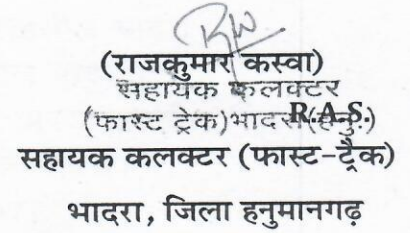 (राजकुमार कस्वा)
सहायक कलक्टर
(फास्ट ट्रेक)भादरा(हनु.)
R.A.S.
सहायक कलक्टर (फास्ट-ट्रैक)
भादरा, जिला हनुमानगढ़